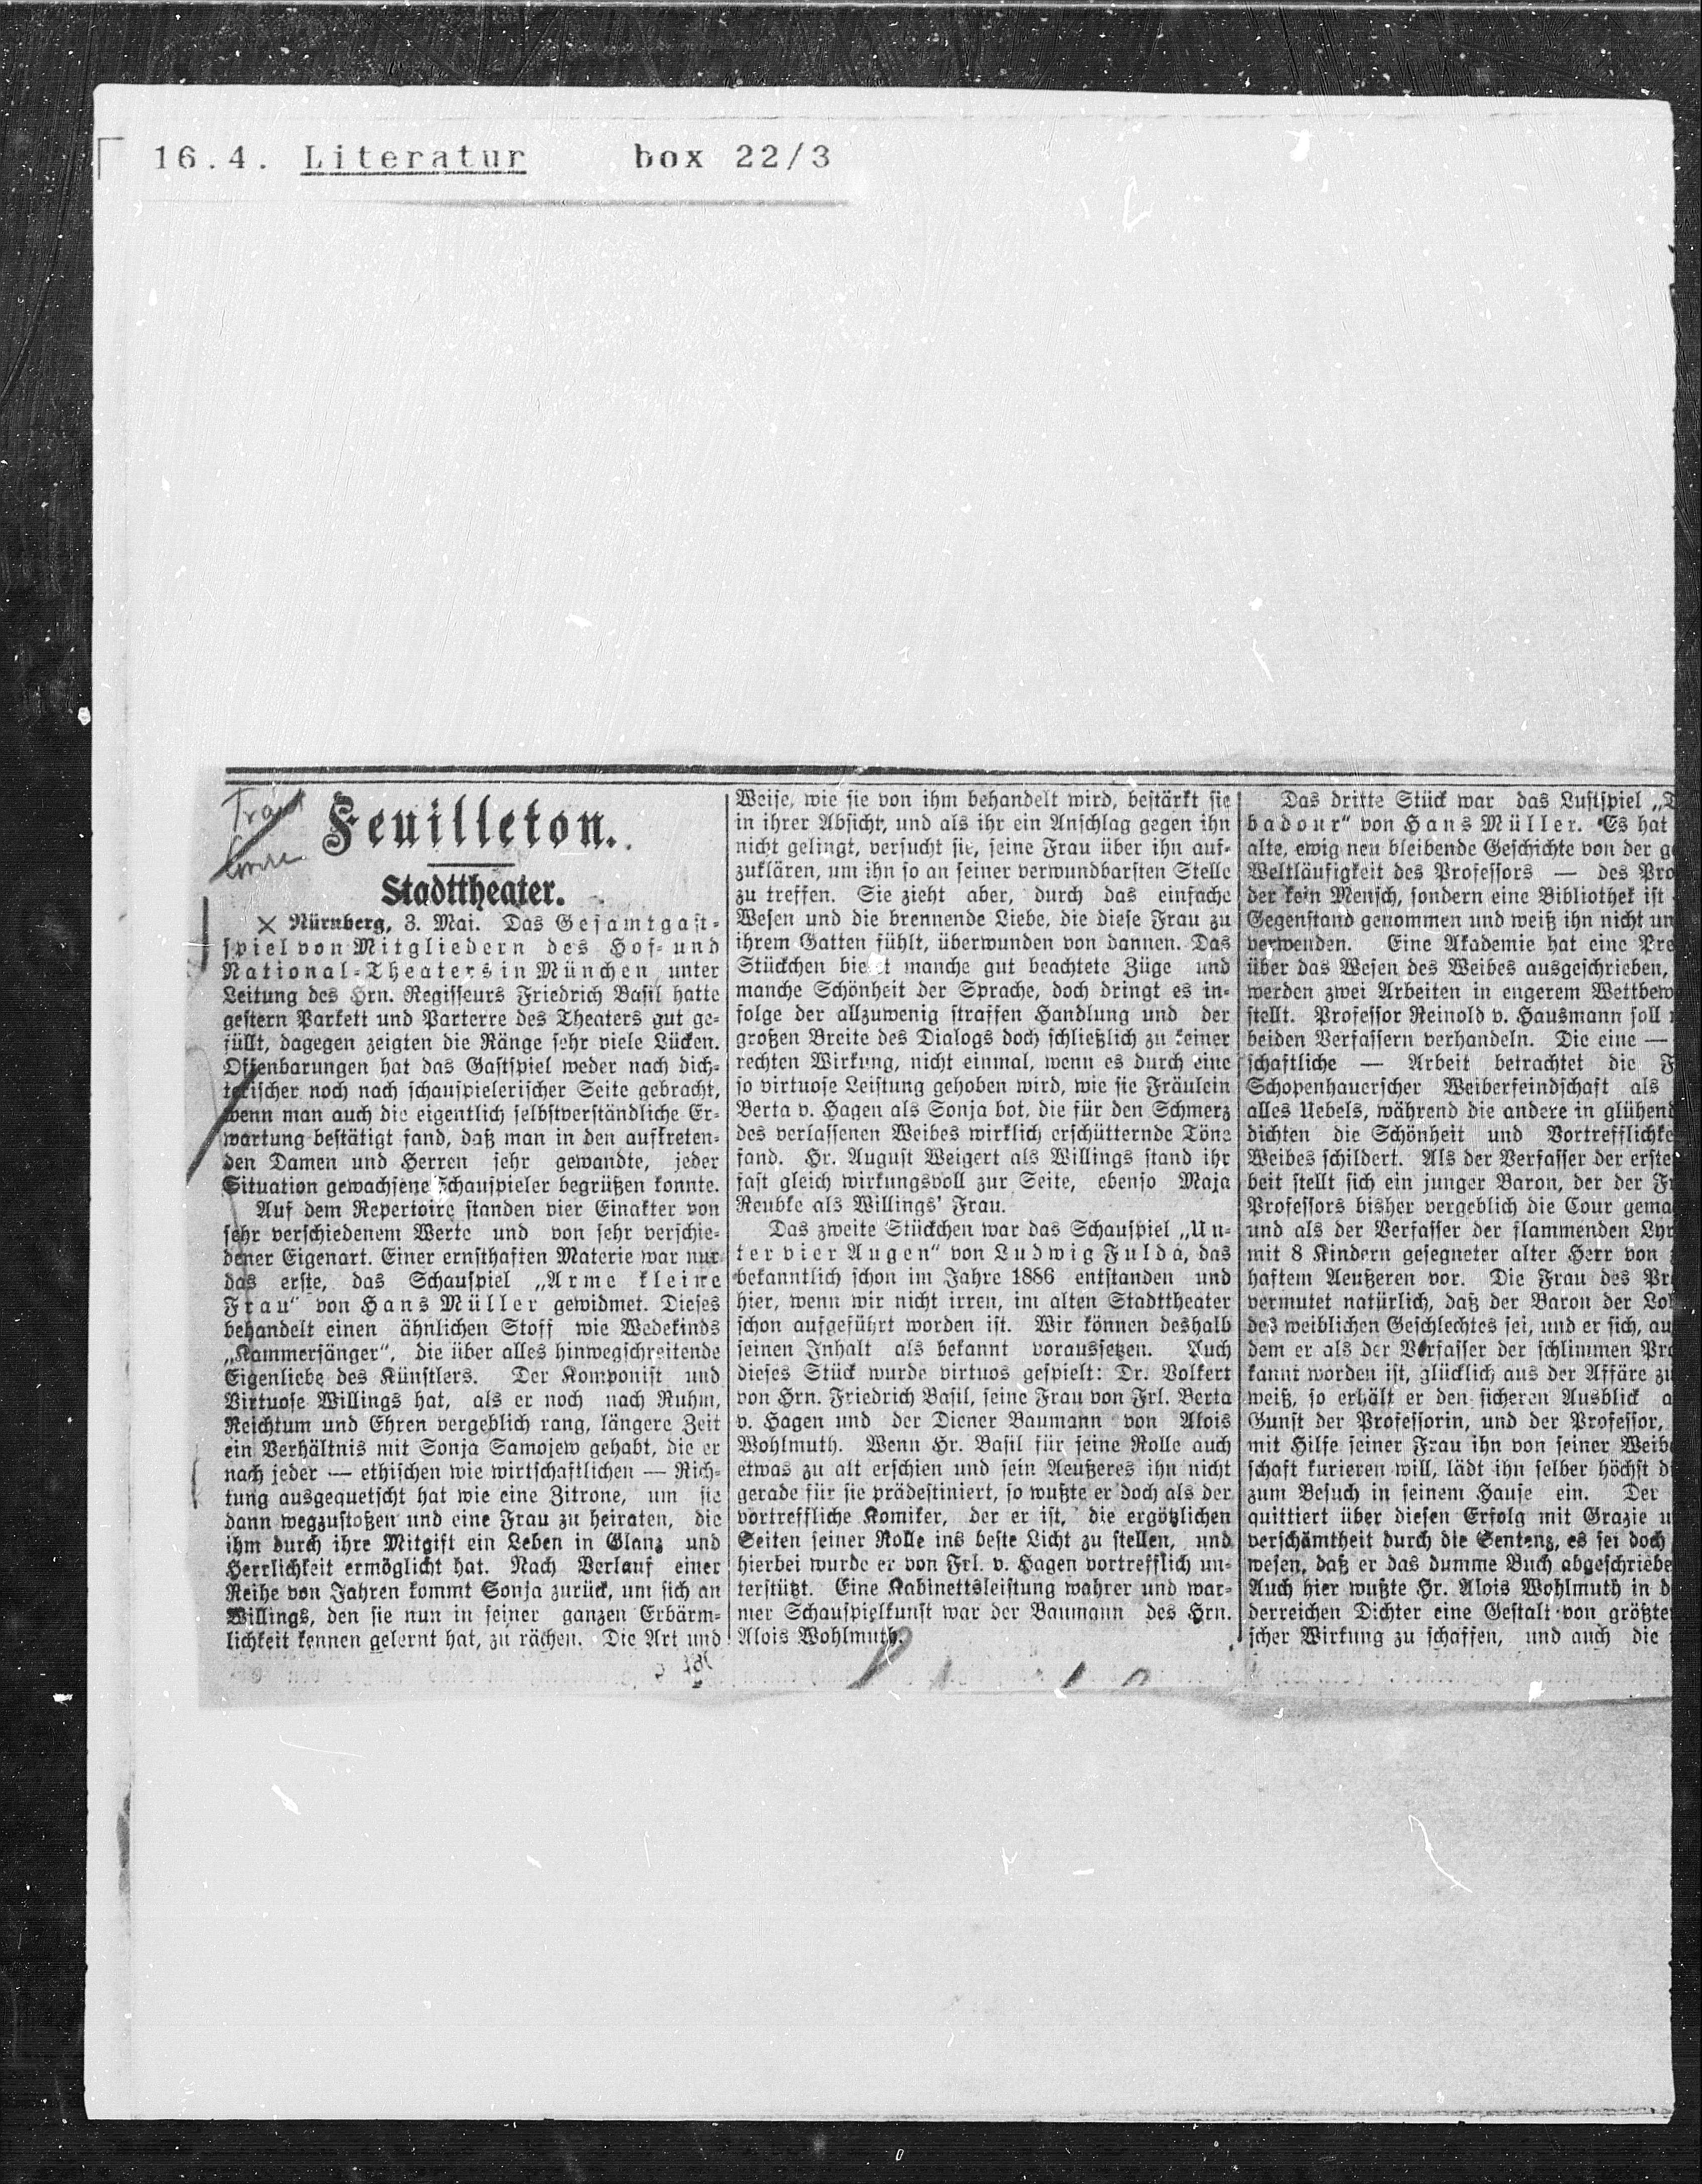 16.4. Literatur box 22/3
Feuilleton.
Stadttheater.
× Nürnberg, 3. Mai. Das Gesamtgast-
spiel von Mitgliedern des Hof- und
National-Theaters in München unter
Leitung des Hrn. Regisseurs Friedrich Basil hatte
gestern Parkett und Parterre des Theaters gut ge-
füllt, dagegen zeigten die Ränge sehr viele Lücken.
Offenbarungen hat das Gastspiel weder nach dich-
terischer noch nach schauspielerischer Seite gebracht,
wenn man auch die eigentlich selbstverständliche Er-
wartung bestätigt fand, daß man in den auftreten-
den Damen und Herren sehr gewandte, jeder
Situation gewachsene Schauspieler begrüßen konnte.
Auf dem Repertoire standen vier Einakter von
sehr verschiedenem Werte und von sehr verschie-
dener Eigenart. Einer ernsthaften Materie war nur
das erste, das Schauspiel „Arme kleine
Frau“ von Hans Müller gewidmet. Dieses
behandelt einen ähnlichen Stoff wie Wedekinds
„Kammersänger“, die über alles hinwegschreitende
Eigenliebe des Künstlers. Der Komponist und
Virtuose Willings hat, als er noch nach Ruhm,
Reichtum und Ehren vergeblich rang, längere Zeit
ein Verhältnis mit Sonja Samojew gehabt, die er
nach jeder — ethischen wie wirtschaftlichen — Rich-
tung ausgequetscht hat wie eine Zitrone, um sie
dann wegzustoßen und eine Frau zu heiraten, die
ihm durch ihre Mitgift ein Leben in Glanz und
Herrlichkeit ermöglicht hat. Nach Verlauf einer
Reihe von Jahren kommt Sonja zurück, um sich an
Willings, den sie nun in seiner ganzen Erbärm-
lichkeit kennen gelernt hat, zu rächen. Die Art und
Weise, wie sie von ihm behandelt wird, bestärkt sie
in ihrer Absicht, und als ihr ein Anschlag gegen ihn
nicht gelingt, versucht sie, seine Frau über ihn auf-
zuklären, um ihn so an seiner verwundbarsten Stelle
zu treffen. Sie zieht aber, durch das einfache
Wesen und die brennende Liebe, die diese Frau zu
ihrem Gatten fühlt, überwunden von dannen. Das
Stückchen bietet manche gut beachtete Züge und
manche Schönheit der Sprache, doch dringt es in-
folge der allzuwenig straffen Handlung und der
großen Breite des Dialogs doch schließlich zu keiner
rechten Wirkung, nicht einmal, wenn es durch eine
so virtuose Leistung gehoben wird, wie sie Fräulein
Berta v. Hagen als Sonja bot, die für den Schmerz
des verlassenen Weibes wirklich erschütternde Töne
fand. Hr. August Weigert als Willings stand ihr
fast gleich wirkungsvoll zur Seite, ebenso Maja
Reubke als Willings' Frau.
Das zweite Stückchen war das Schauspiel „Un-
ter vier Augen“ von Ludwig Fulda, das
bekanntlich schon im Jahre 1886 entstanden und
hier, wenn wir nicht irren, im alten Stadttheater
schon aufgeführt worden ist. Wir können deshalb
seinen Inhalt als bekannt voraussetzen. Auch
dieses Stück wurde virtuos gespielt: Dr. Volkert
von Hrn. Friedrich Basil, seine Frau von Frl. Berta
v. Hagen und der Diener Baumann von Alois
Wohlmuth. Wenn Hr. Basil für seine Rolle auch
etwas zu alt erschien und sein Aeußeres ihn nicht
gerade für sie prädestiniert, so wußte er doch als der
vortreffliche Komiker, der er ist, die ergötzlichen
Seiten seiner Rolle ins beste Licht zu stellen, und
hierbei wurde er von Frl. v. Hagen vortrefflich un-
terstützt. Eine Kabinettsleistung wahrer und war-
mer Schauspielkunst war der Baumann des Hrn.
Alois Wohlmuth.
Das dritte Stück war das Lustspiel „T
badour“ von Hans Müller. Es hat
alte, ewig neu bleibende Geschichte von der g
Weltläufigkeit des Professors — des Pro
der kein Mensch, sondern eine Bibliothek ist
Gegenstand genommen und weiß ihn nicht un
verwenden. Eine Akademie hat eine Pre
über das Wesen des Weibes ausgeschrieben,
werden zwei Arbeiten in engerem Wettbew
stellt. Professor Reinold v. Hausmann soll
beiden Verfassern verhandeln. Die eine —
schaftliche — Arbeit betrachtet die F
Schopenhauerscher Weiberfeindschaft als
alles Uebels, während die andere in glühend
dichten die Schönheit und Vortrefflichke
Weibes schildert. Als der Verfasser der erste
beit stellt sich ein junger Baron, der der Fr
Professors bisher vergeblich die Cour gema
und als der Verfasser der flammenden Lyr
mit 8 Kindern gesegneter alter Herr von
haftem Aeußeren vor. Die Frau des Pr
vermutet natürlich, daß der Baron der Lob
des weiblichen Geschlechtes sei, und er sich, au
dem er als der Verfasser der schlimmen Pro
kannt worden ist, glücklich aus der Affäre zu
weiß, so erhält er den sicheren Ausblick a
Gunst der Professorin, und der Professor,
mit Hilfe seiner Frau ihn von seiner Weib
schaft kurieren will, lädt ihn selber höchst d
zum Besuch in seinem Hause ein. Der
quittiert über diesen Erfolg mit Grazie u
verschämtheit durch die Sentenz, es sei doch
wesen, daß er das dumme Buch abgeschriebe
Auch hier wußte Hr. Alois Wohlmuth in d
derreichen Dichter eine Gestalt von größte
scher Wirkung zu schaffen, und auch die